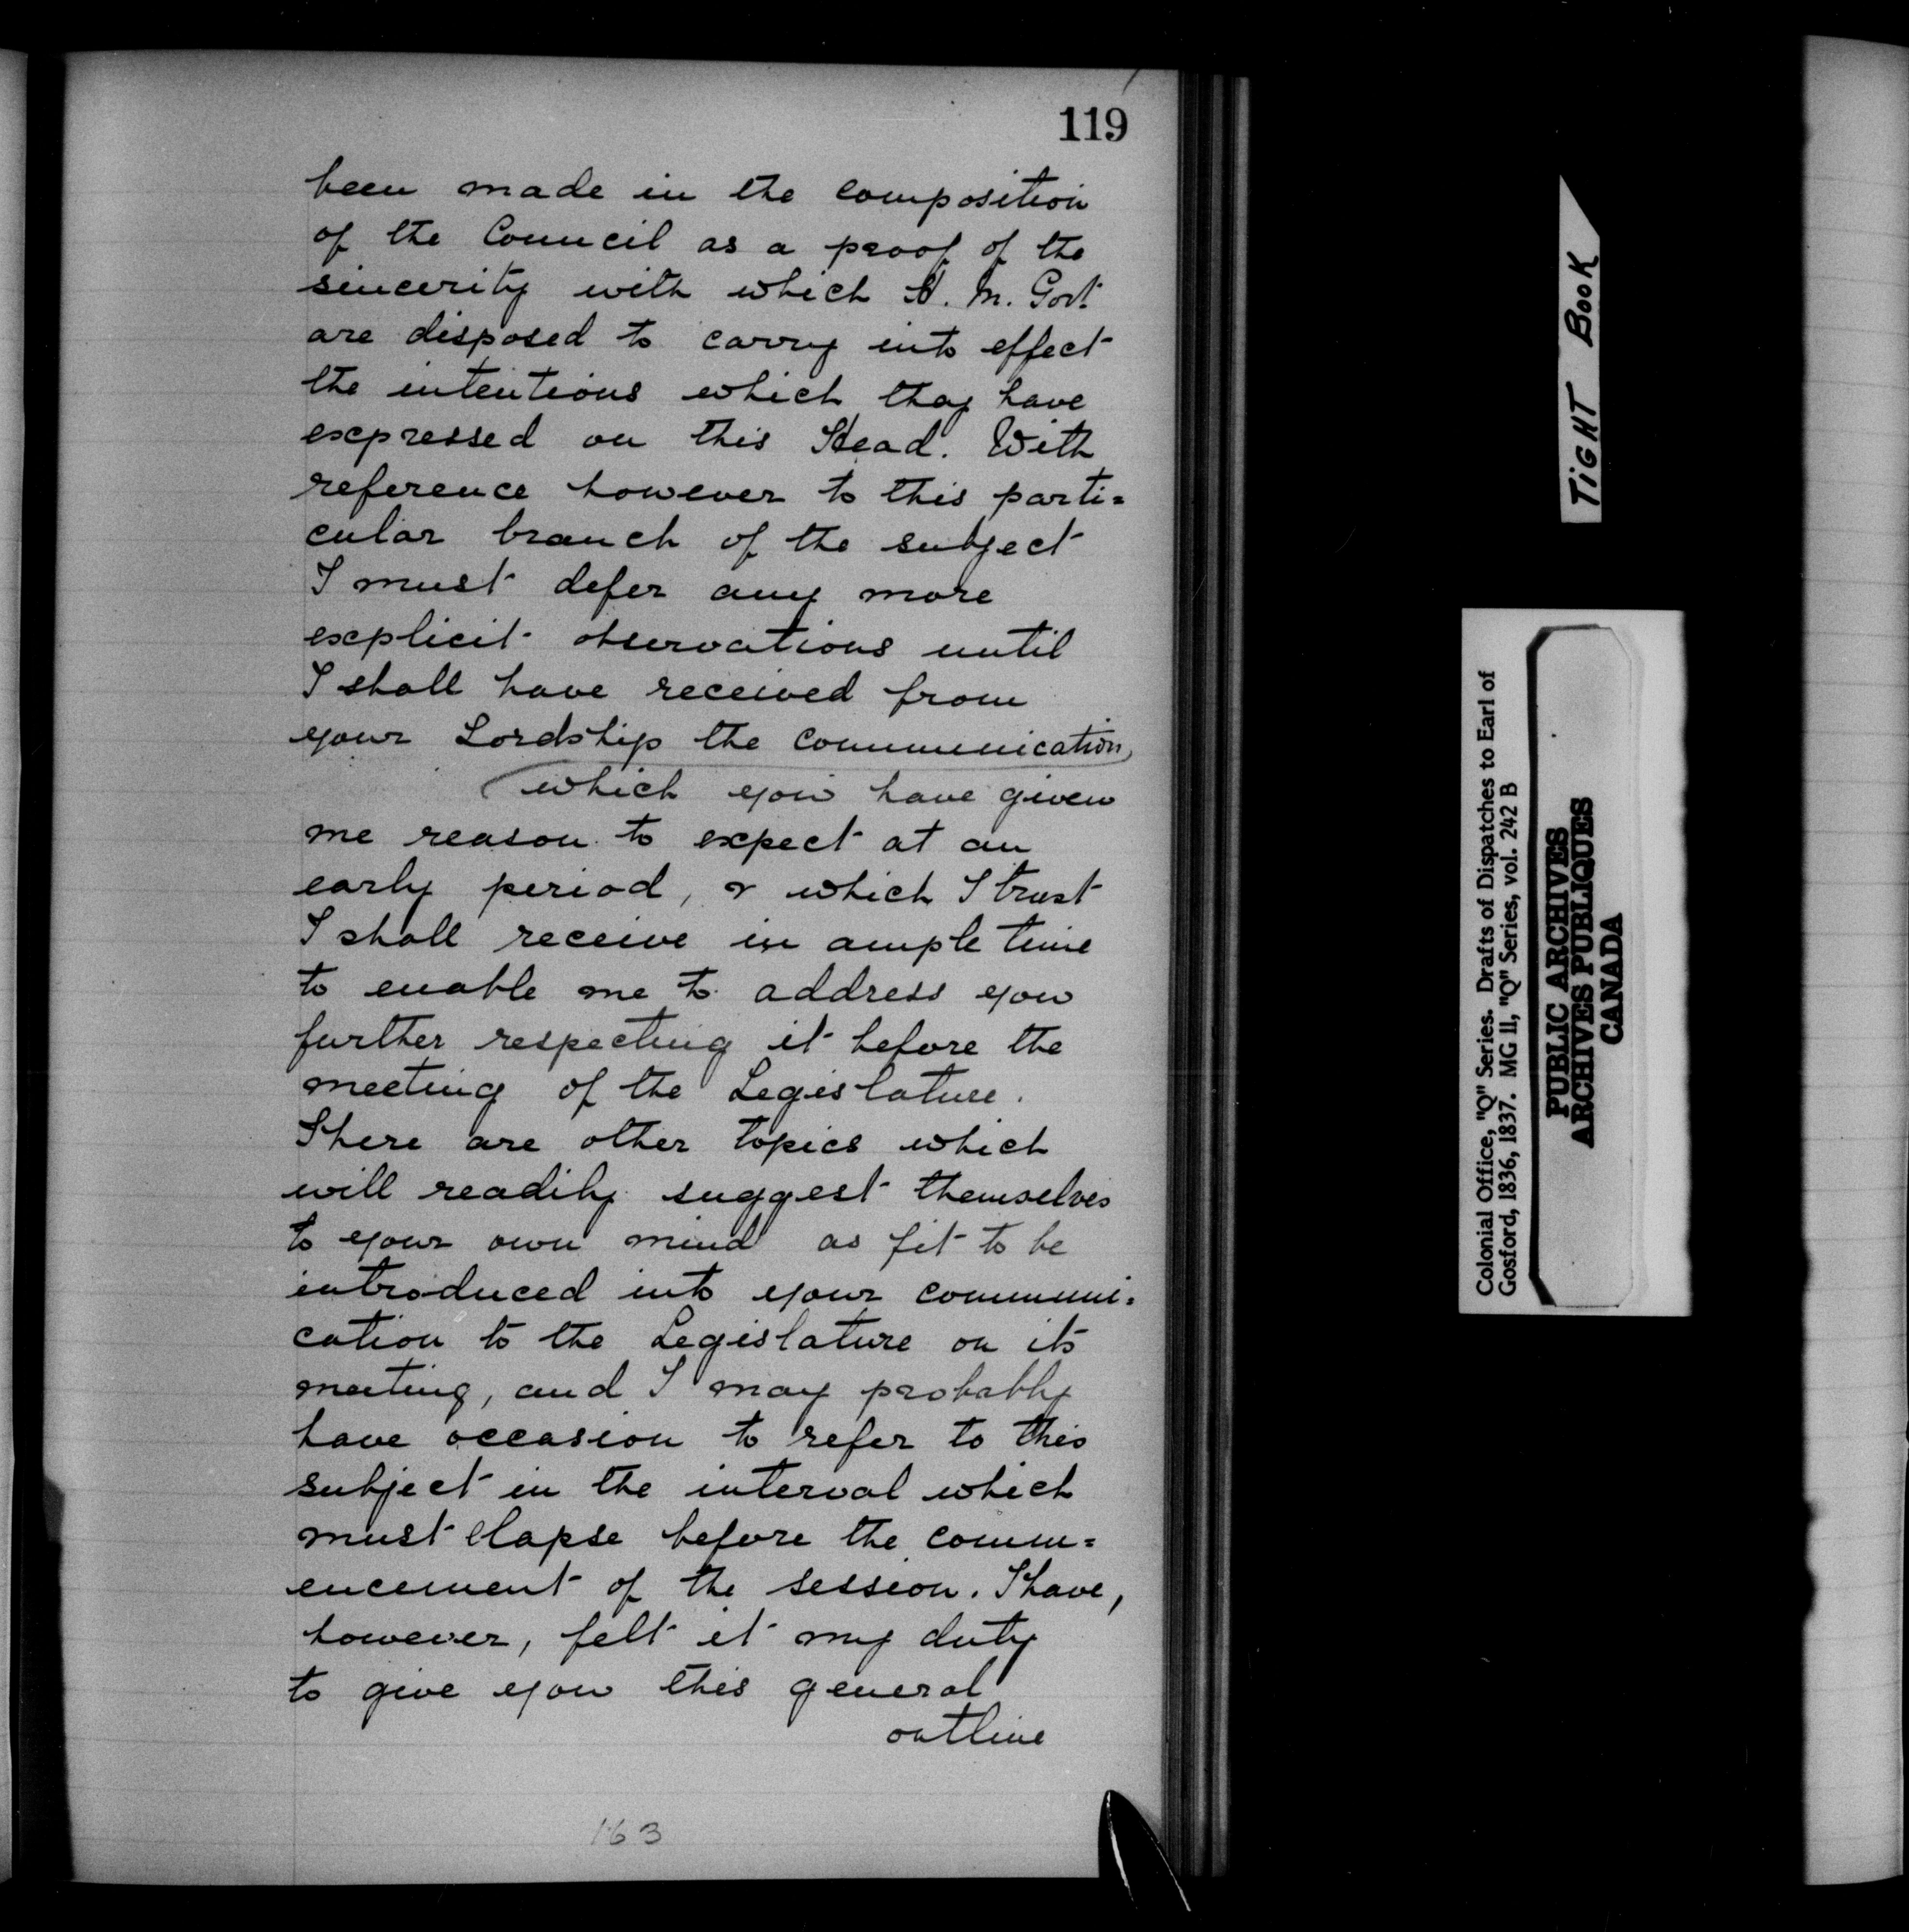 119
been made in the composition
of the Council as a proof of the
sincerity with which H. M. Govt
are disposed to carry into effect
the intentions which they have
expressed on this Head. With
reference however to this parti=
cular branch of the subject
I must defer any more
explicit observations until
I shall have received from
your Lordship the communication
which you have given
me reason to expect at an
early period, & which I trust
I shall receive in ample time
to enable me to address you
further respecting it before the
meeting of the Legislature.
There are other topics which
will readily suggest themselves
to your own mind as fit to be
introduced into your communi=
cation to the Legislature on its
meeting, and I may probably
have occasion to refer to this
subject in the interval which
must elapse before the comm=
encement of the session. I have,
however, felt it my duty
to give you this general
outline
163
TIGHT BOOK
Colonial Office, "Q" Series. Drafts of Dispatches to Earl of
Gosford, 1836, 1837. MG 11, "Q" Series, vol. 242 B
PUBLIC ARCHIVES
ARCHIVES PUBLIQUES
CANADA